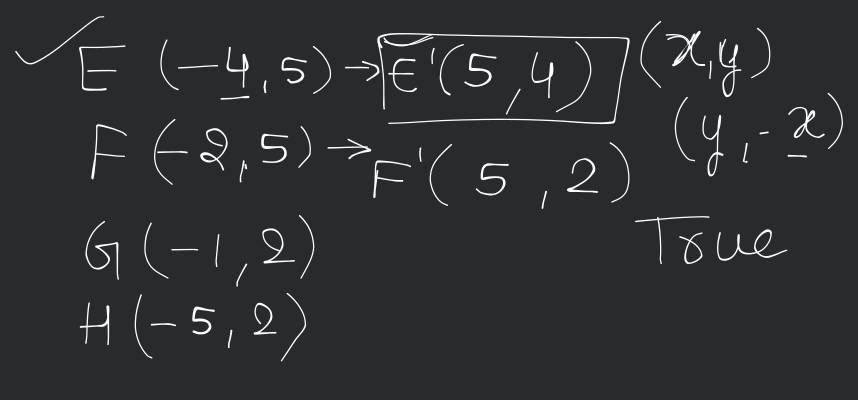 E (-4,5) → E'(5,4) (x,y)
F (-2,5) → F'(5,2) (y,-x)
G (-1,2) True
H (-5,2)